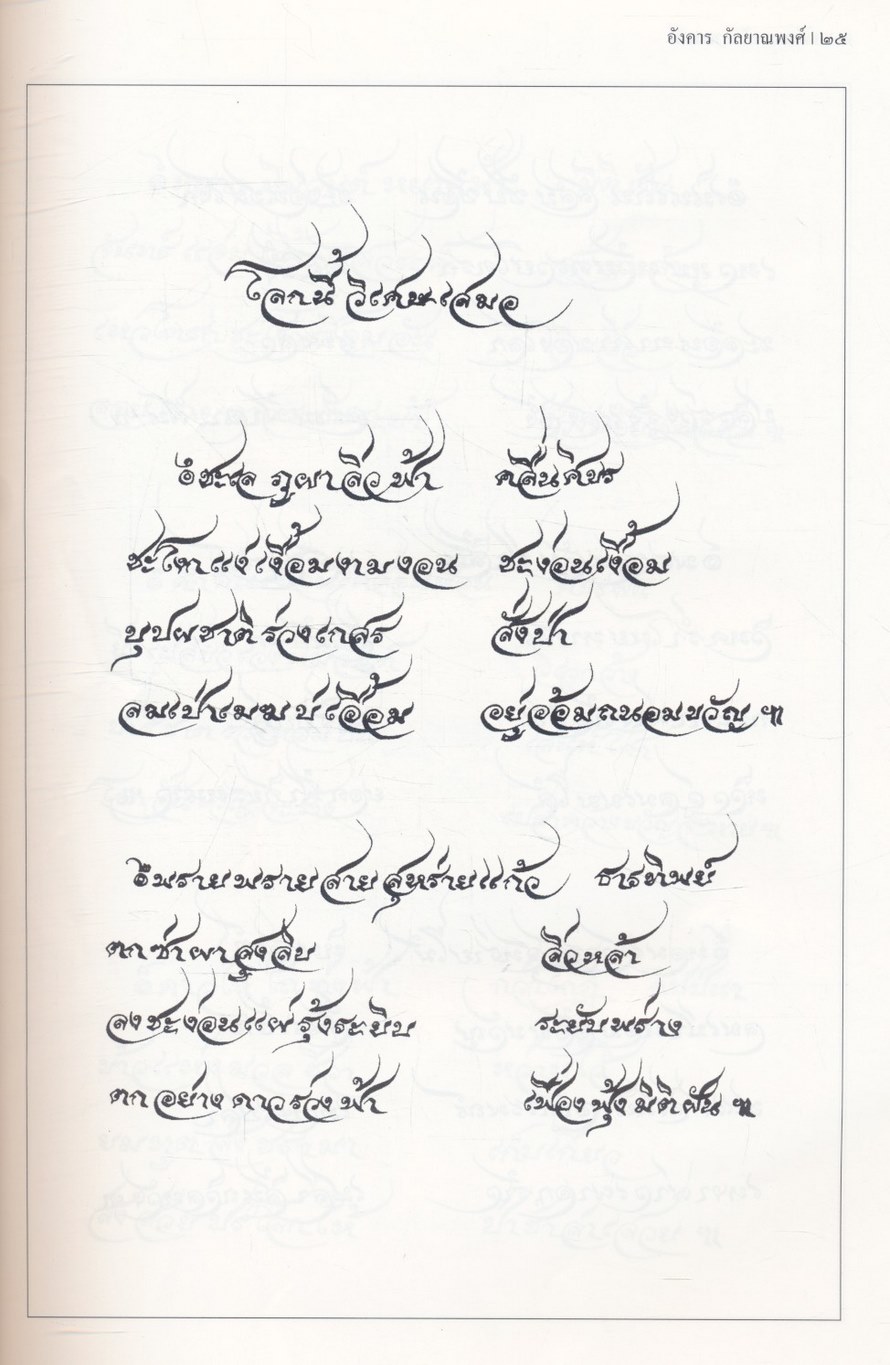 อังคาร กัลยาณพงศ์ | ๒๕
โลกนี้ วิเศษเสมอ
๏ ชะเล ภูผาลิ่วฟ้า คลื่นศิขร
ชะโตแง่เงื้อมงามงอน ชะง่อนเงื้อม
บุปผชาติร่วงเกสร สั่งป่า
ลมเป่าเมฆบ่เอื้อม อยู่อ้อมถนอมขวัญ ฯ
๏ พรายพรายสายสุหร่ายแก้ว ธารทิพย์
ตกซ่าผาสูงลิบ ลิ่วหล้า
ลงชะง่อนแผ่รุ้งระยิบ ระยับพร่าง
ตกอย่างดาวร่วงฟ้า เฟื่องฟุ้งมิติฝัน ฯ